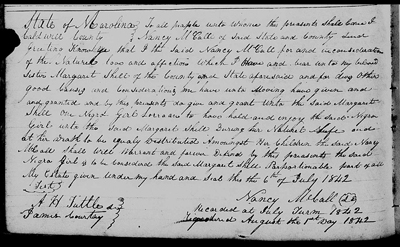 State of N Carolina } To all people unto whome the presents shall Come I
Caldwell County } Nancy McCall of Said State and County Send
Greeting Knowledge that I the Said Nancy McCall for and inconsideration
of the Natural love and affection Which I Have and bear unto my beloved
Sister Margaret Shell of the County and State aforesaid and for divers other
good Causes and Considerations Me have unto Moving have given and
and granted and by this presents do give and grant unto the Said Margaret
Shell One Negro Girl to have hold and enjoy the Said Negro
Girl unto the Said Margaret Shell During her Natural Life and
at her Death to be equaly Distributed Amongst her Children the Said Nancy
McCall Shall Will Warrant and forever Defend by this presents the Said
Negro Girl is to be Considered the Said Margaret Shells part of
My Estate given under my hand and Seal this the 6th of July 1842
(Test)
A H Tuttle
James Courtay
Nancy McCall
Recorded at July Term 1842
Registered August the 1st Day 1842